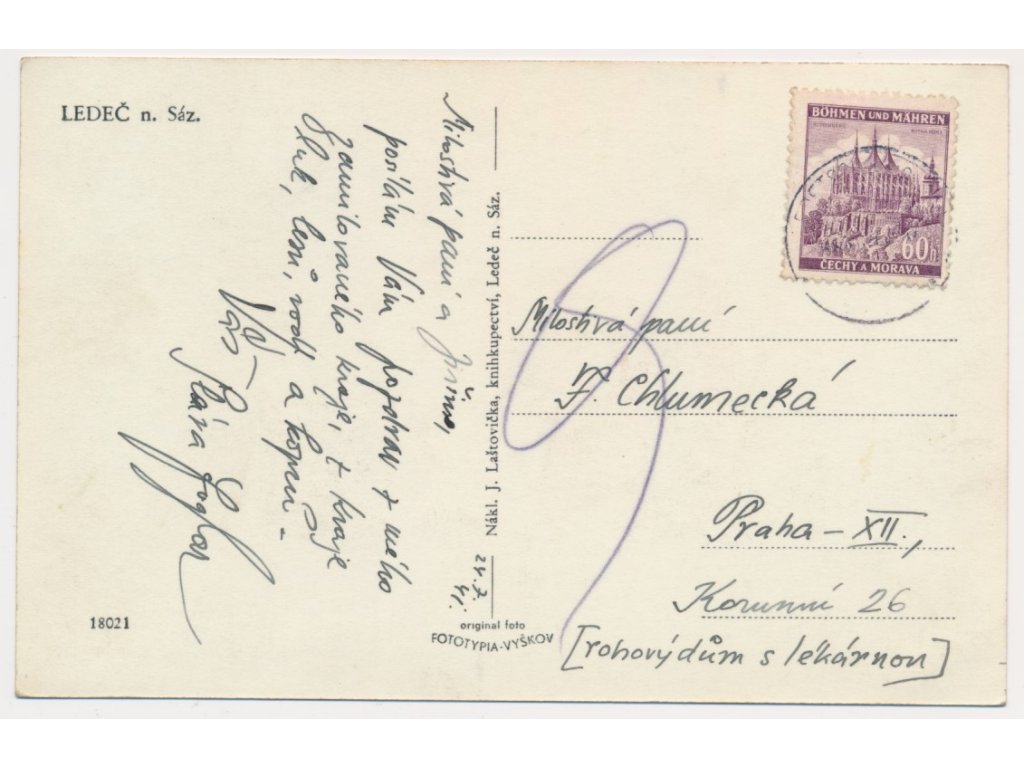 LEDEČ n. Sáz.
Milostivá paní a Jiřino,
posílám Vám pozdrav z mého
zamilovaného kraje, z kraje
luk, lesů, vod a kopců -
Váš
Sláva Foglar
18021
Nákl. J. Laštovička, knihkupectví, Ledeč n. Sáz.
24. 7. 41.
original foto
FOTOTYPIA-VYŠKOV
BÖHMEN UND MÄHREN
60h
ČECHY A MORAVA
Milostivá paní
F. Chlumecká
Praha - XII.,
Korunní 26
[rohový dům s lékárnou]